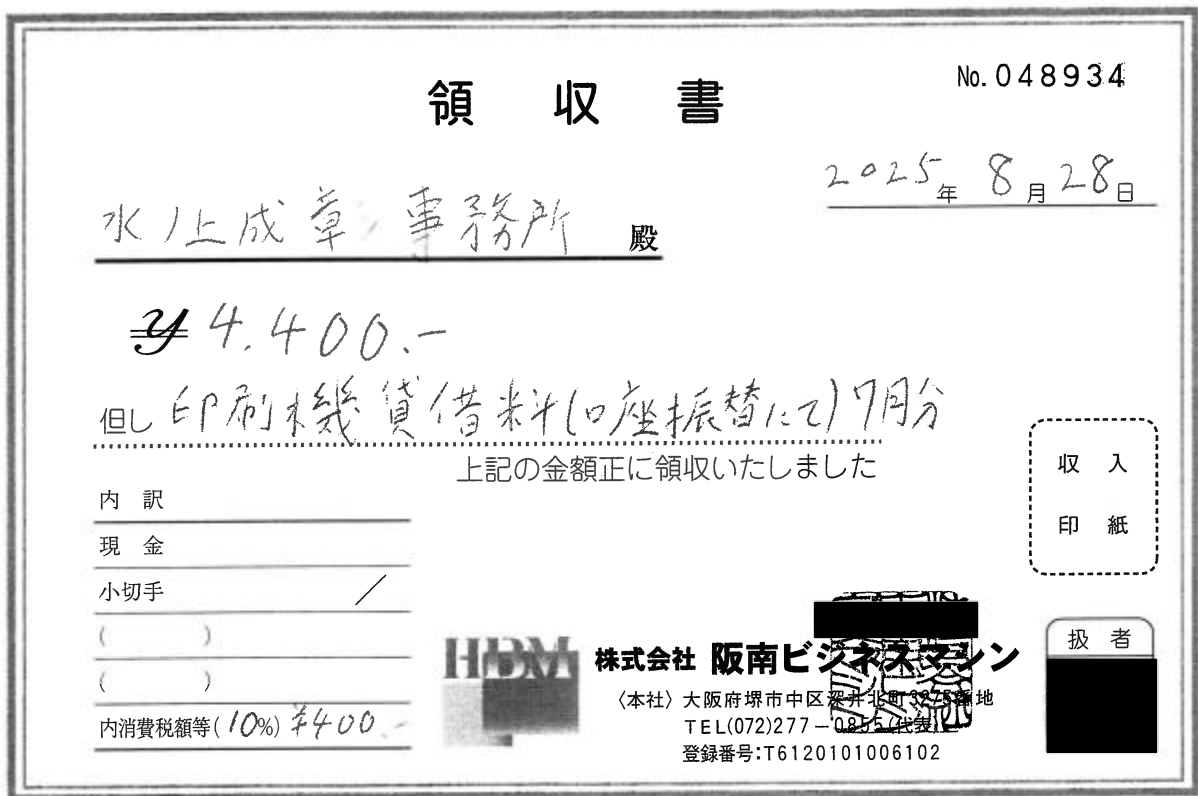 領収書
No.048934
2025年 8月28日
水ノ上成章 事務所 殿
¥4,400.-
但し 印刷機賃借料(口座振替にて)7月分
上記の金額正に領収いたしました
収入
印紙
内訳
現金
小切手
( )
( )
内消費税額等(10%) ¥400.-
扱者
HBM
株式会社 阪南ビジネスマシン
〈本社〉大阪府堺市中区深井北町3275番地
TEL(072)277-0855(代表)
登録番号:T6120101006102